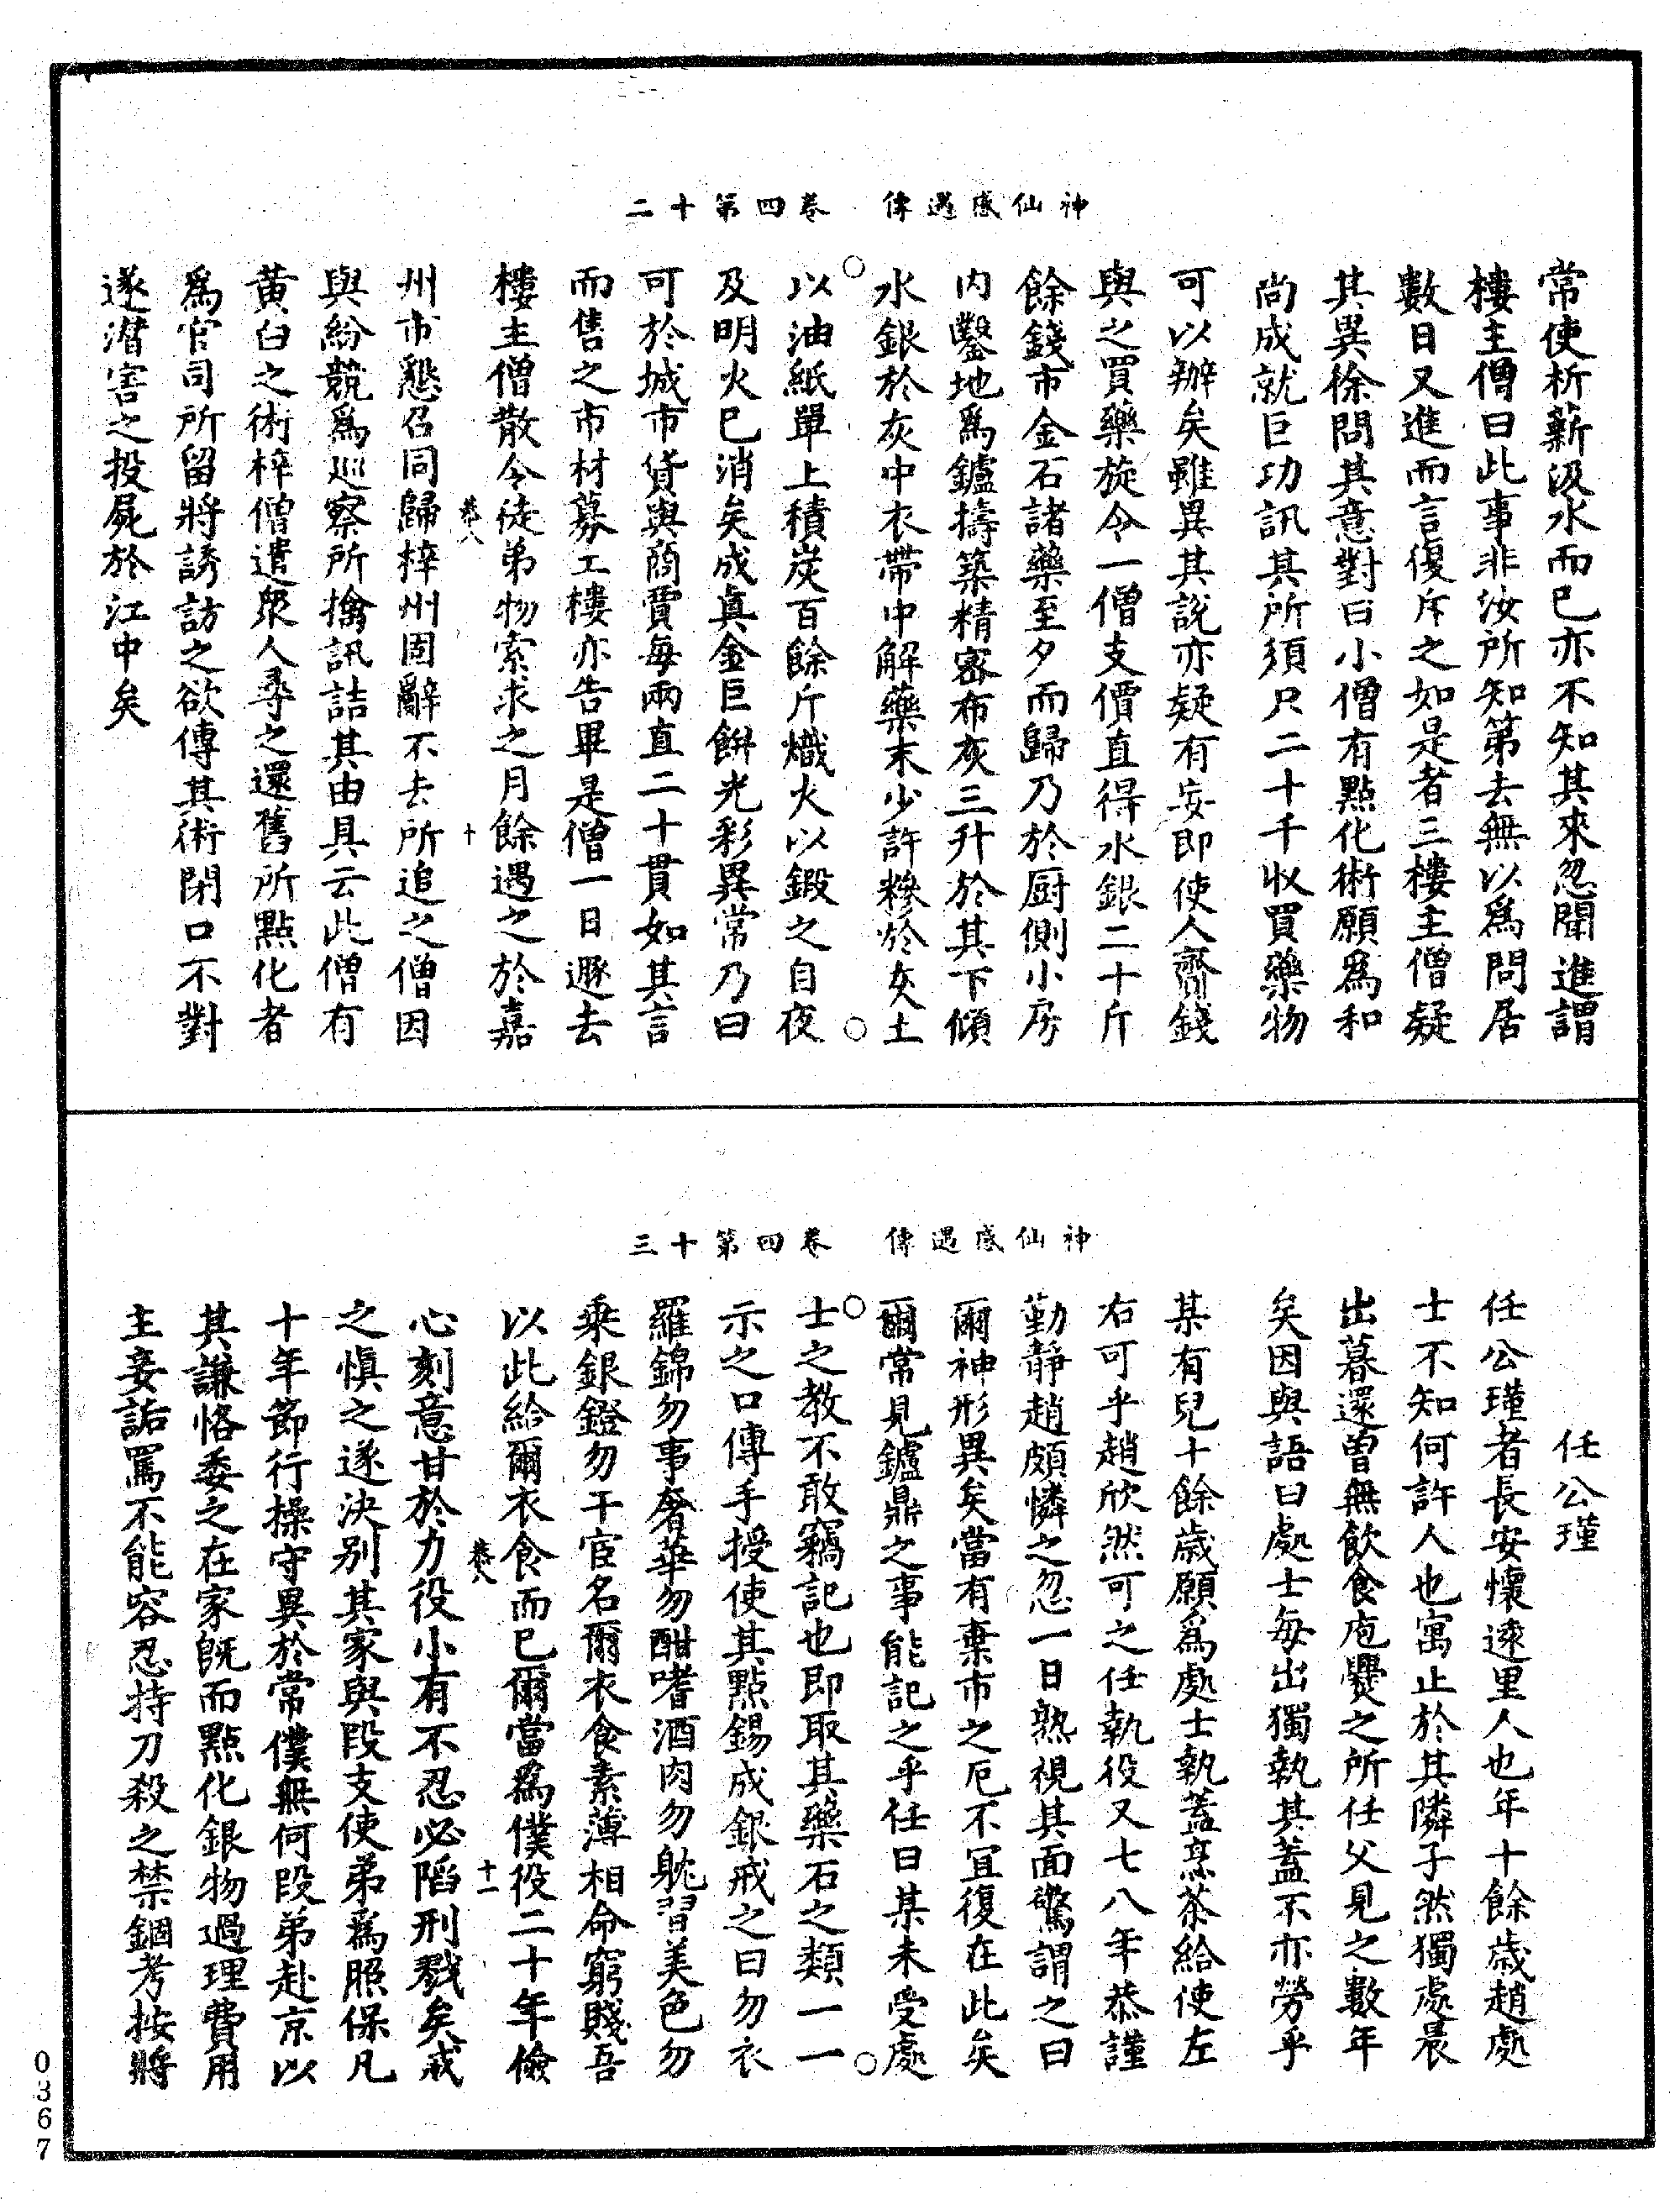 神仙感遇傳　卷四第十二
常使析薪汲水而已亦不知其來忽聞進謂
樓主僧曰此事非汝所知第去無以爲問居
數日又進而言復斥之如是者三樓主僧疑
其異徐問其意對曰小僧有點化術願爲和
尚成就巨功訊其所須只二十千收買藥物
可以辦矣雖異其說亦疑有妄即使人齎錢
與之買藥旋令一僧支價直得水銀二十斤
餘錢市金石諸藥至夕而歸乃於厨側小房
内鑿地爲鑪擣築精密布灰三升於其下傾
水銀於灰中衣帶中解藥末少許糝於灰土
以油紙單上積炭百餘斤熾火以鍛之自夜
及明火已消矣成真金巨餅光彩異常乃曰
可於城市貨與商賈每兩直二十貫如其言
而售之市材募工樓亦告畢是僧一日遯去
樓主僧散令徒弟物索求之月餘遇之於嘉
卷八　十
州市懇召同歸梓州固辭不去所追之僧因
與紛競爲巡察所擒訊詰其由具云此僧有
黃白之術梓僧遣衆人尋之還舊所點化者
爲官司所留將誘訪之欲傳其術閉口不對
遂潛害之投屍於江中矣
神仙感遇傳　卷四第十三
任公瑾
任公瑾者長安懷遠里人也年十餘歲趙處
士不知何許人也寓止於其隣孑然獨處晨
出暮還曾無飲食庖爨之所任父見之數年
矣因與語曰處士每出獨執其蓋不亦勞乎
某有兒十餘歲願爲處士執蓋烹茶給使左
右可乎趙欣然可之任執役又七八年恭謹
勤靜趙頗憐之忽一日熟視其面驚謂之曰
爾神形異矣當有棄市之厄不宜復在此矣
爾常見鑪鼎之事能記之乎任曰某未受處
士之教不敢竊記也即取其藥石之類一一
示之口傳手授使其點錫成銀戒之曰勿衣
羅錦勿事奢華勿酣嗜酒肉勿躭習美色勿
乘銀鐙勿干宦名爾衣食素薄相命窮賤吾
以此給爾衣食而已爾當爲僕役二十年儉
卷八　十一
心刻意甘於力役小有不忍必陷刑戮矣戒
之慎之遂決别其家與段支使弟爲照保凡
十年節行操守異於常僕無何段弟赴京以
其謙恪委之在家旣而點化銀物過理費用
主妾詬罵不能容忍持刀殺之禁錮考按將
0367